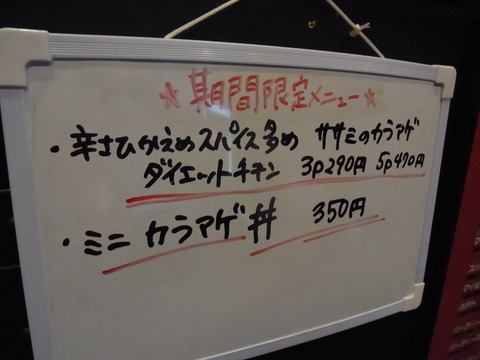 ☆期間限定メニュー☆
・辛さひかえめスパイス多め ササミのカラアゲ
ダイエットチキン 3p290円 5p470円
・ミニ カラアゲ丼 350円